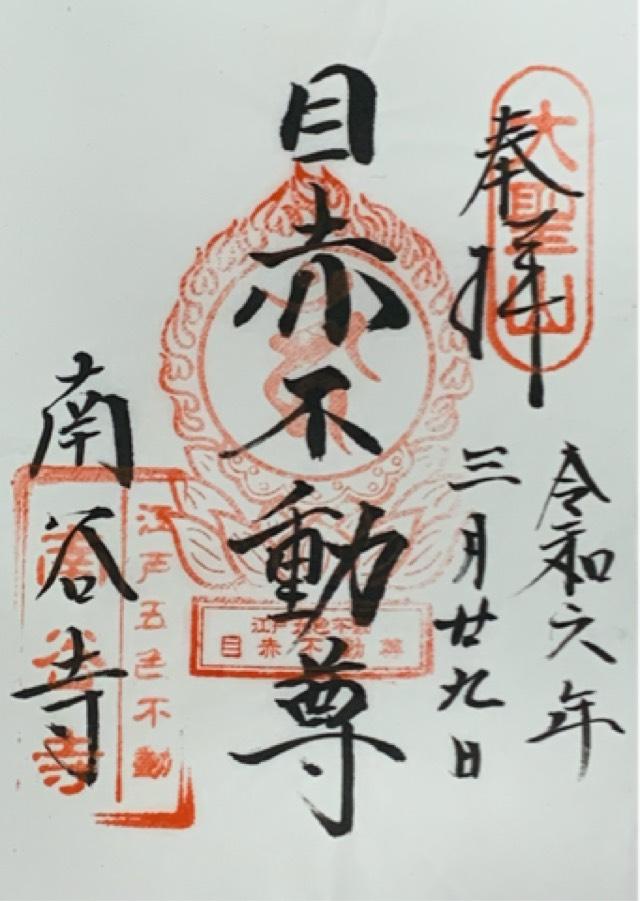 奉拝
大聖山
令和六年
三月廿九日
目赤不動尊
江戸五色不動
目赤不動尊
南谷寺
江戸五色不動
南谷寺